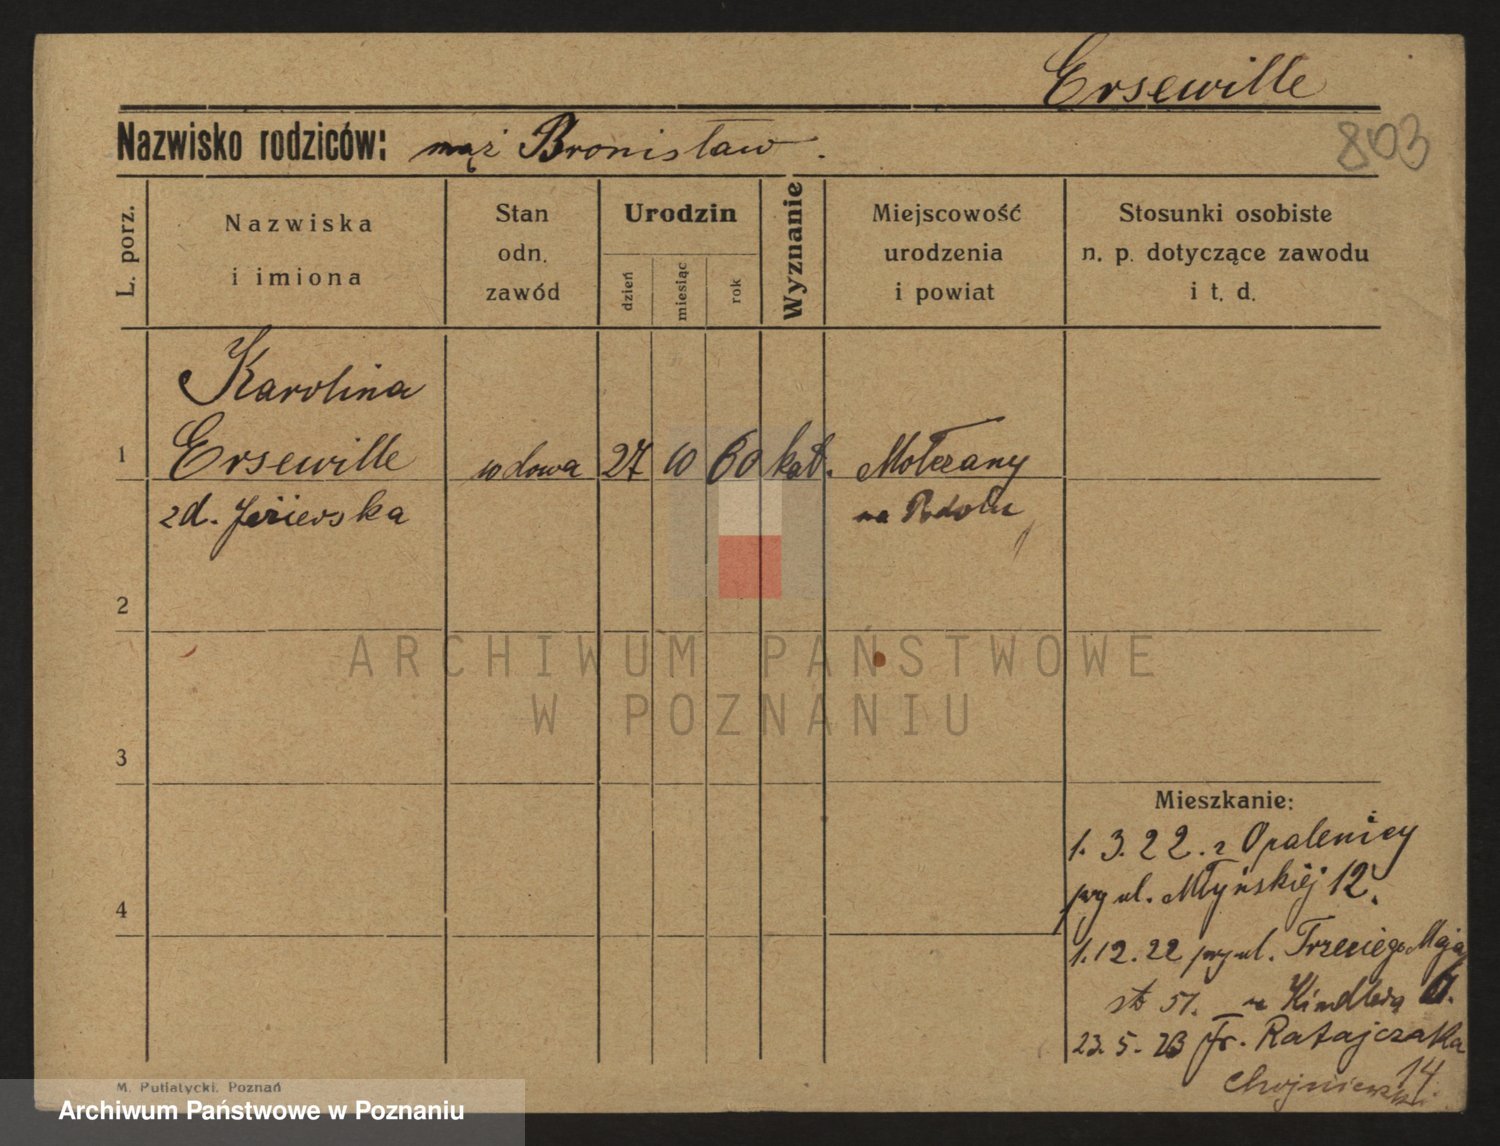 Ersewille
Nazwisko rodziców: mąż Bronisław.
803
L. porz.
Nazwiska
i imiona
Stan
odn.
zawód
Urodzin
dzień
miesiąc
rok
Wyznanie
Miejscowość
urodzenia
i powiat
Stosunki osobiste
n. p. dotyczące zawodu
i t. d.
Karolina
1 Ersewille wdowa 27 10 60 kat.
zd. na
2
3
4
Mieszkanie:
1. 3. 22. z Opalenicy
przy ul. Młyńskiej 12.
1. 12. 22 przy ul. Trzeciego Maja
51.
23. 5. 23 Fr. Ratajczaka
14
Chojniewski
M. Putiatycki, Poznań
ARCHIWUM PAŃSTWOWE
W POZNANIU
Archiwum Państwowe w Poznaniu